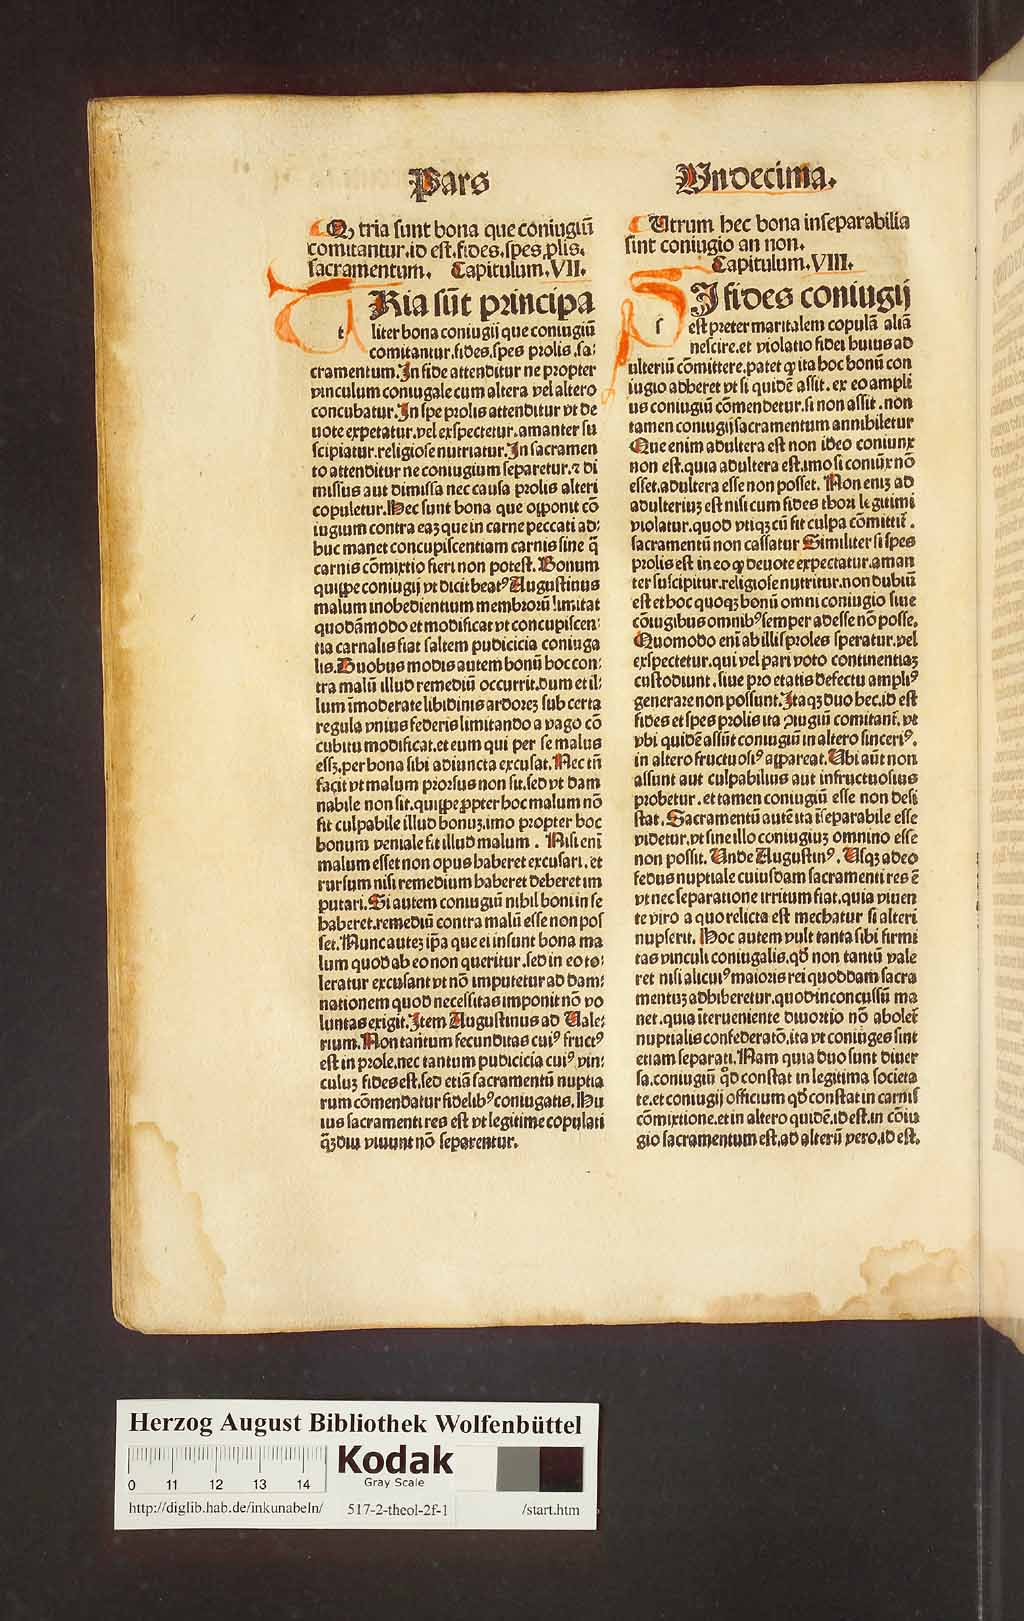 Pars
Vndecima.
Ꝙ tria sunt bona que coniugiū
comitantur.id est.fides.spes ꝓlis.
sacramentum. Capitulum.VII.
TRia sūt principa
t
liter bona coniugij que coniugiū
comitantur.fides.spes prolis.sa:
cramentum.In fide attenditur ne propter
vinculum coniugale cum altera vel altero
concubatur.In spe prolis attenditur vt de
uote expetatur.vel exspectetur.amanter su
scipiatur.religiose nutriatur.In sacramen
to attenditur ne coniugium separetur.⁊ di
missus aut dimissa nec causa prolis alteri
copuletur.Hec sunt bona que opponit cō
iugium contra eaꝫ que in carne peccati ad:
huc manet concupiscentiam carnis sine q̄
carnis cōmixtio fieri non potest. Bonum
quippe coniugij vt dicit beatꝰ Augustinus
malum inobedientium membrorū limitat
quodāmodo et modificat vt concupiscen:
tia carnalis fiat saltem pudicicia coniuga
lis.Duobus modis autem bonū hoc con:
tra malū illud remediū occurrit.dum et il:
lum īmoderate libidinis ardoreꝫ sub certa
regula vnius federis limitando a vago cō
cubitu modificat.et eum qui per se malus
essꝫ.per bona sibi adiuncta excusat.Nec tn̄
facit vt malum prorsus non sit.sed vt dam
nabile non sit.quippe ꝓpter hoc malum nō
fit culpabile illud bonuꝫ.imo propter hoc
bonum veniale fit illud malum . Nisi eni
malum esset non opus haberet excusari.et
rursum nisi remedium haberet deberet im
putari.Si autem coniugiū nihil boni in se
haberet.remediū contra malū esse non pos
set.Nunc auteꝫ ip̄a que ei insunt bona ma
lum quod ab eo non queritur.sed in eo to:
leratur excusant vt nō imputetur ad dam:
nationem quod necessitas imponit nō vo
luntas exigit.Item Augustinus ad Vale:
rium.Non tantum fecunditas cuiꝰ fructꝰ
est in prole.nec tantum pudicicia cuiꝰ vin:
culuꝫ fides est.sed etiā sacramentū nuptia
rum cōmendatur fidelibꝰ coniugatis.Hu
ius sacramenti res est vt legitime copulati
q̄ꝫdiu viuunt nō separentur.
Utrum hec bona inseparabilia
sint coniugio an non.
Capitulum.VIII.
SI fides coniugij
s
est preter maritalem copulā aliā
nescire.et violatio fidei huius ad
ulteriū cōmittere.patet ꝙ ita hoc bonū con
iugio adheret vt si quidē assit. ex eo ampli
us coniugiū cōmendetur.si non assit.non
tamen coniugij sacramentum annihiletur
Que enim adultera est non ideo coniunx
non est.quia adultera est.imo si coniūx nō
esset.adultera esse non posset. Non eniꝫ ad
adulteriuꝫ est nisi cum fides thori legitimi
violatur.quod vtiqꝫ cū fit culpa cōmittit̄.
sacramentū non cassatur Similiter si spes
prolis est in eo ꝙ deuote expectatur.aman
ter suscipitur.religiose nutritur.non dubiū
est et hoc quoqꝫ bonū omni coniugio siue
cōiugibus omnibꝰ semper adesse nō posse.
Quomodo eni ab illis proles speratur.vel
exspectetur.qui vel pari voto continentiaꝫ
custodiunt.siue pro etatis defectu ampliꝰ
generare non possunt.Itaqꝫ duo hec.id est
fides et spes prolis ita ꝯiugiū comitant̄.vt
vbi quidē assūt coniugiū in altero sinceriꝰ.
in altero fructuosiꝰ appareat.Ubi aūt non
assunt aut culpabilius aut infructuosius
probetur.et tamen coniugiū esse non desi
stat.Sacramentū autē ita īseparabile esse
videtur.vt sine illo coniugiuꝫ omnino esse
non possit.Unde Augustinꝰ.Usqꝫ adeo
fedus nuptiale cuiusdam sacramenti res ē
vt nec separatione irritum fiat.quia viuen
te viro a quo relicta est mechatur si alteri
nupserit.Hoc autem vult tanta sibi firmi
tas vinculi coniugalis.qd̄ non tantū vale
ret nisi alicuiꝰ maioris rei quoddam sacra
mentuꝫ adhiberetur.quod inconcussū ma
net.quia īterueniente diuortio nō abolet̄
nuptialis confederatō.ita vt coniuges sint
etiam separati.Nam quia duo sunt diuer
sa.coniugiū qd̄ constat in legitima societa
te.et coniugij officium qd̄ constat in carnis
cōmixtione.et in altero quidē.id est.in cōiu
gio sacramentum est.ad alterū vero.id est.
Herzog August Bibliothek Wolfenbüttel
Kodak
Gray Scale
0 11 12 13 14
http://diglib.hab.de/inkunabeln/ 517-2-theol-2f-1 /start.htm